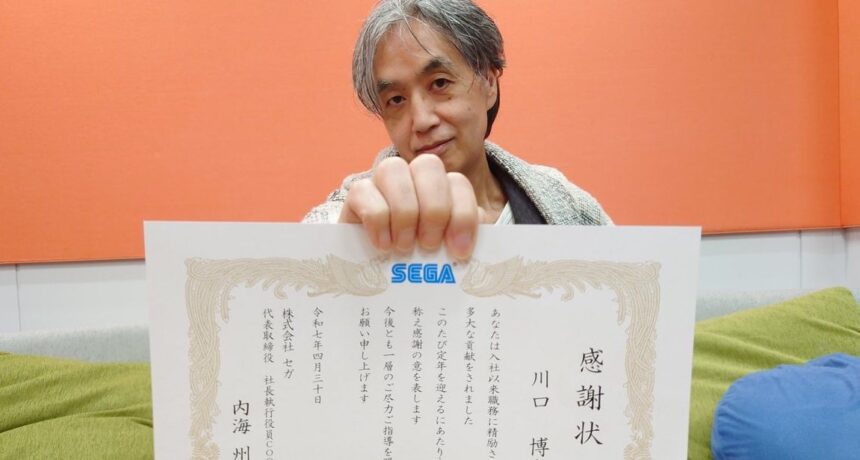 SEGA
感謝状
川口 博
あなたは入社以来職務に精励さ
多大な貢献をされました
このたび定年を迎えるにあたり
称え感謝の意を表します
今後とも一層のご尽力ご指導を
お願い申し上げます
令和七年四月三十日
株式会社 セガ
代表取締役 社長執行役員CO
内海 州